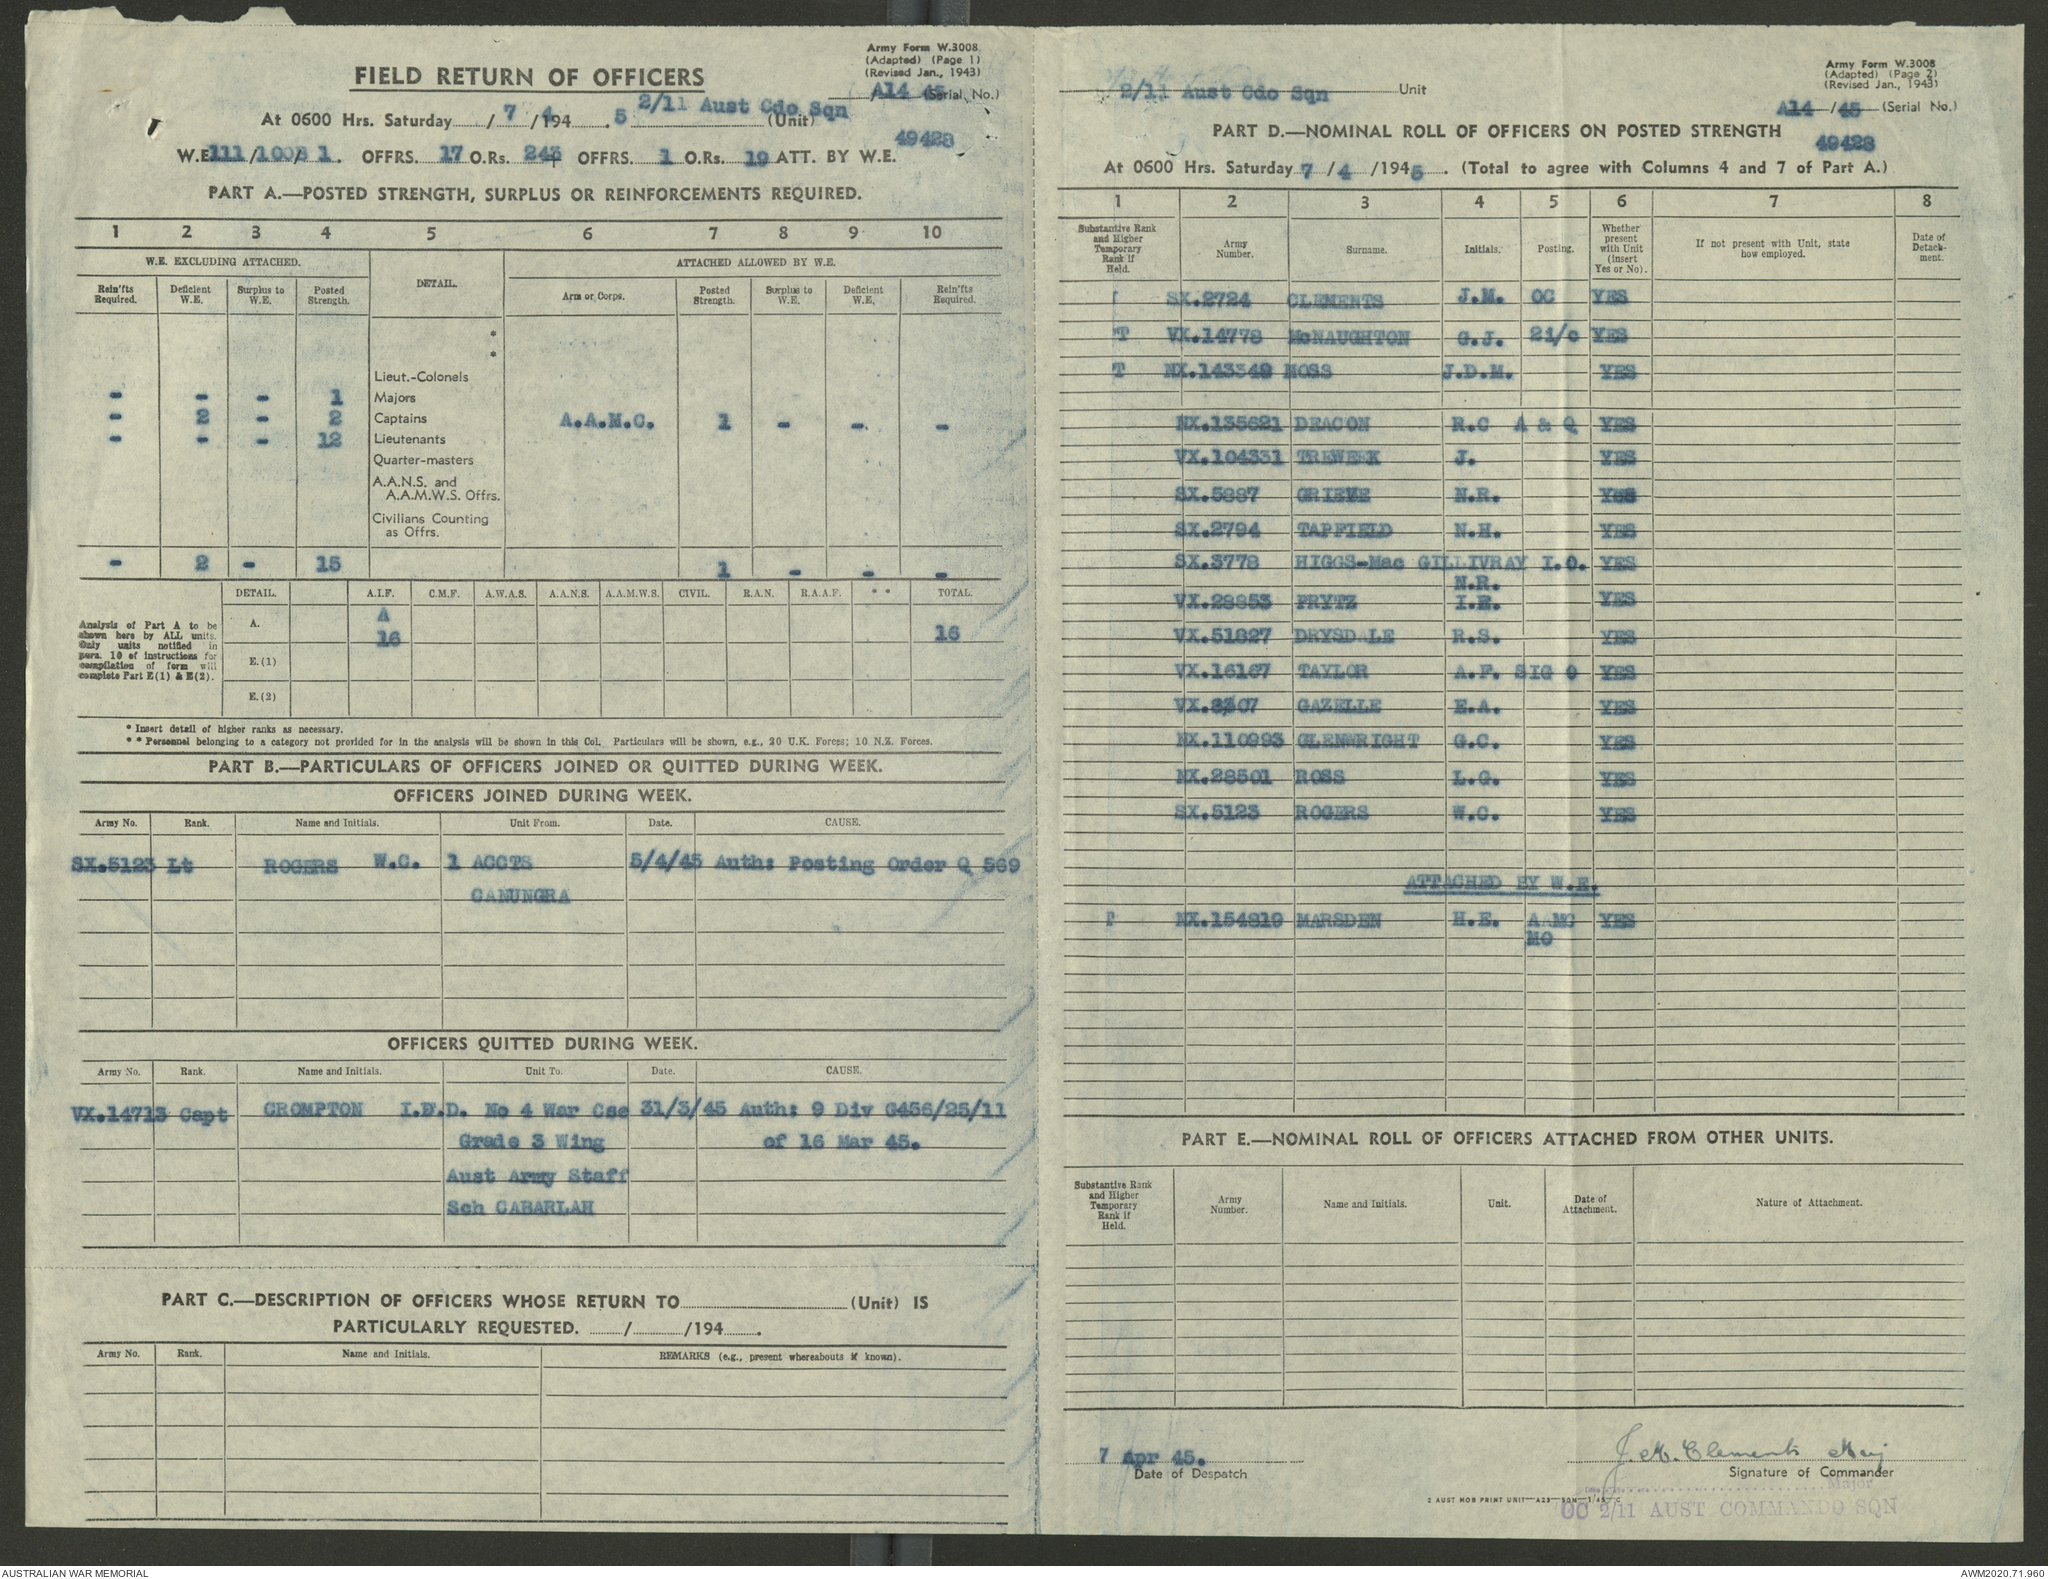 Army Form W.3008
(Adapted) (Page 1)
(Revised Jan., 1943)
FIELD RETURN OF OFFICERS
A14 /45 (Serial No.)
At 0600 Hrs. Saturday 7 / 4 /194 5 2/11 Aust Cdo Sqn (Unit)
49428
W.E. 111/1008/1. OFFRS. 17 O.Rs. 243 OFFRS. 1 O.Rs. 19 ATT. BY W.E.
PART A.—POSTED STRENGTH, SURPLUS OR REINFORCEMENTS REQUIRED.
1 2 3 4 5 6 7 8 9 10
W.E. EXCLUDING ATTACHED. DETAIL. ATTACHED ALLOWED BY W.E.
Rein'fts Required. Deficient W.E. Surplus to W.E. Posted Strength. Arm or Corps. Posted Strength. Surplus to W.E. Deficient W.E. Rein'fts Required.
*
*
Lieut.-Colonels
- - - 1 Majors
- 2 - 2 Captains A.A.M.C. 1 - - -
- - - 12 Lieutenants
Quarter-masters
A.A.N.S. and
A.A.M.W.S. Offrs.
Civilians Counting
as Offrs.
- 2 - 15 1 - - -
DETAIL. A.I.F. C.M.F. A.W.A.S. A.A.N.S. A.A.M.W.S. CIVIL. R.A.N. R.A.A.F. * * TOTAL.
Analysis of Part A to be
shown here by ALL units.
Only units notified in
para. 10 of instructions for
compilation of form will
complete Part E(1) & E(2).
A. A
16 16
E.(1)
E.(2)
* Insert detail of higher ranks as necessary.
* * Personnel belonging to a category not provided for in the analysis will be shown in this Col. Particulars will be shown, e.g., 20 U.K. Forces; 10 N.Z. Forces.
PART B.—PARTICULARS OF OFFICERS JOINED OR QUITTED DURING WEEK.
OFFICERS JOINED DURING WEEK.
Army No. Rank. Name and Initials. Unit From. Date. CAUSE.
SX.5123 Lt ROGERS W.C. 1 ACCTS 5/4/45 Auth: Posting Order Q 569
CANUNGRA
OFFICERS QUITTED DURING WEEK.
Army No. Rank. Name and Initials. Unit To. Date. CAUSE.
VX.14713 Capt CROMPTON I.F.D. No 4 War Cse 31/3/45 Auth: 9 Div G456/25/11
Grade 3 Wing of 16 Mar 45.
Aust Army Staff
Sch CABARLAH
PART C.—DESCRIPTION OF OFFICERS WHOSE RETURN TO (Unit) IS
PARTICULARLY REQUESTED. / /194 .
Army No. Rank. Name and Initials. REMARKS (e.g., present whereabouts if known).
Army Form W.3008
(Adapted) (Page 2)
(Revised Jan., 1943)
2/11 Aust Cdo Sqn Unit
A14 /45 (Serial No.)
PART D.—NOMINAL ROLL OF OFFICERS ON POSTED STRENGTH
49428
At 0600 Hrs. Saturday 7 / 4 /194 5 . (Total to agree with Columns 4 and 7 of Part A.)
1 2 3 4 5 6 7 8
Substantive Rank and Higher Temporary Rank if Held. Army Number. Surname. Initials. Posting. Whether present with Unit (insert Yes or No). If not present with Unit, state how employed. Date of Detach-ment.
SX.2724 CLEMENTS J.M. OC YES
T VX.14778 McNAUGHTON G.J. 2i/c YES
T NX.143349 MOSS J.D.M. YES
NX.135621 DEACON R.C A & Q YES
VX.104331 TREWEEK J. YES
SX.5887 GRIEVE N.R. YES
SX.2794 TAPFIELD N.H. YES
SX.3778 HIGGS-Mac GILLIVRAY I.O. YES
N.R.
VX.28853 PRYTZ I.E. YES
VX.51827 DRYSDALE R.S. YES
VX.16167 TAYLOR A.F. SIG O YES
GAZELLE E.A. YES
NX.110993 GLENWRIGHT G.C. YES
NX.28501 ROSS L.G. YES
SX.5123 ROGERS W.C. YES
ATTACHED BY W.E.
T NX.154819 MARSDEN H.E. AAMC YES
MO
PART E.—NOMINAL ROLL OF OFFICERS ATTACHED FROM OTHER UNITS.
Substantive Rank and Higher Temporary Rank if Held. Army Number. Name and Initials. Unit. Date of Attachment. Nature of Attachment.
7 Apr 45.
Date of Despatch
J.M. Clements Maj
Signature of Commander
Major
2 AUST MOB PRINT UNIT—A23—50M—1/45—C
OC 2/11 AUST COMMANDO SQN
AUSTRALIAN WAR MEMORIAL
AWM2020.71.960